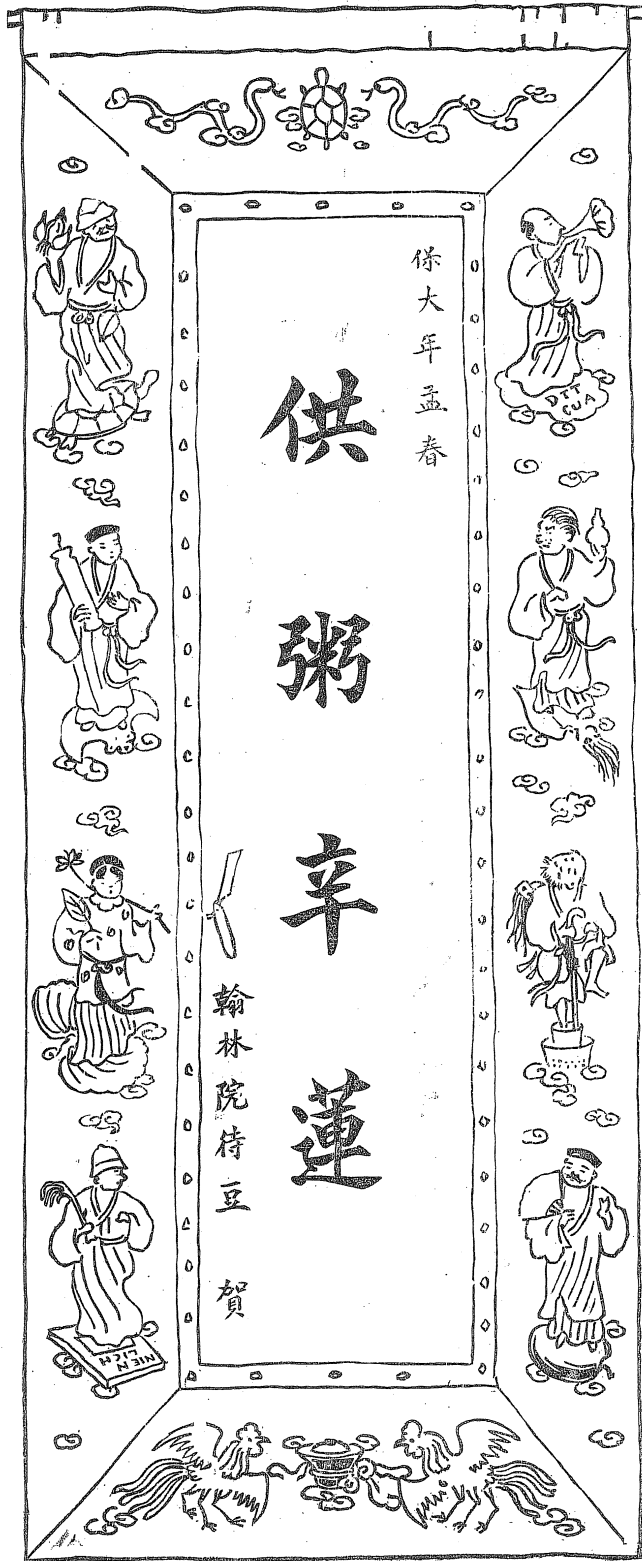 保大年孟春
供粥辛蓮
翰林院待豆 賀
DTT
CUA
NIEN
LICH